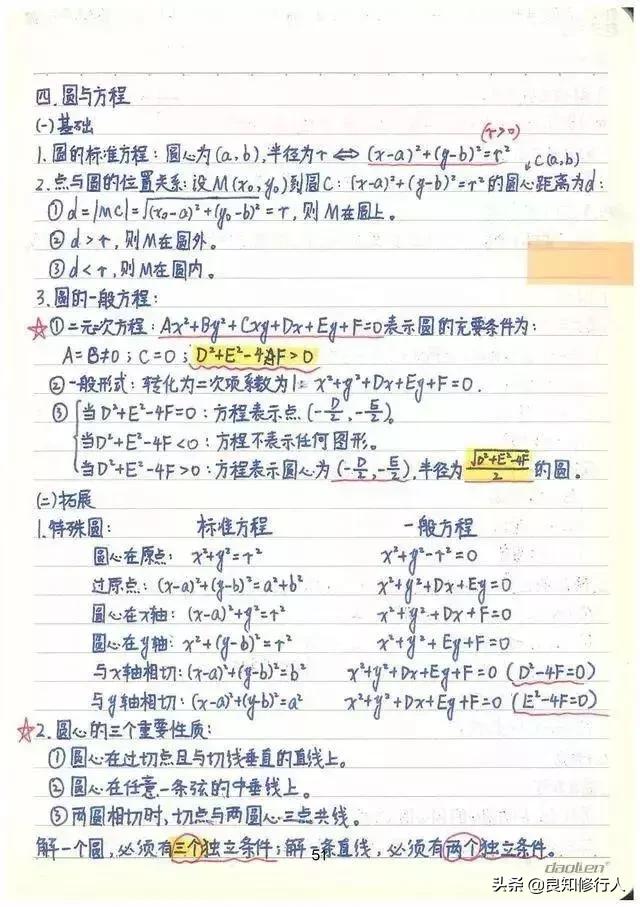 四.圆与方程
(一)基础
(r>0)
1.圆的标准方程：圆心为(a,b),半径为r⇔(x-a)²+(y-b)²=r²
C(a,b)
2.点与圆的位置关系：设M(x₀,y₀)到圆C：(x-a)²+(y-b)²=r²的圆心距离为d：
①d=|MC|=√(x₀-a)²+(y₀-b)²=r,则M在圆上。
②d>r,则M在圆外。
③d<r,则M在圆内。
3.圆的一般方程：
☆①二元二次方程：Ax²+By²+Cxy+Dx+Ey+F=0表示圆的充要条件为：
A=B≠0；C=0；D²+E²-4AF>0
②一般形式：转化为二次项系数为1=x²+y²+Dx+Ey+F=0.
③当D²+E²-4F=0：方程表示点(-D/2,-E/2)。
当D²+E²-4F<0：方程不表示任何图形。
当D²+E²-4F>0：方程表示圆心为(-D/2,-E/2),半径为√D²+E²-4F/2的圆。
(二)拓展
1.特殊圆： 标准方程 一般方程
圆心在原点：x²+y²=r² x²+y²-r²=0
过原点：(x-a)²+(y-b)²=a²+b² x²+y²+Dx+Ey=0
圆心在x轴：(x-a)²+y²=r² x²+y²+Dx+F=0
圆心在y轴：x²+(y-b)²=r² x²+y²+Ey+F=0
与x轴相切：(x-a)²+(y-b)²=b² x²+y²+Dx+Ey+F=0(D²-4F=0)
与y轴相切：(x-a)²+(y-b)²=a² x²+y²+Dx+Ey+F=0(E²-4F=0)
☆2.圆心的三个重要性质：
①圆心在过切点且与切线垂直的直线上。
②圆心在任意一条弦的中垂线上。
③两圆相切时,切点与两圆心三点共线。
解一个圆,必须有三个独立条件；解一条直线,必须有两个独立条件。
51
daolien
头条@良知修行人